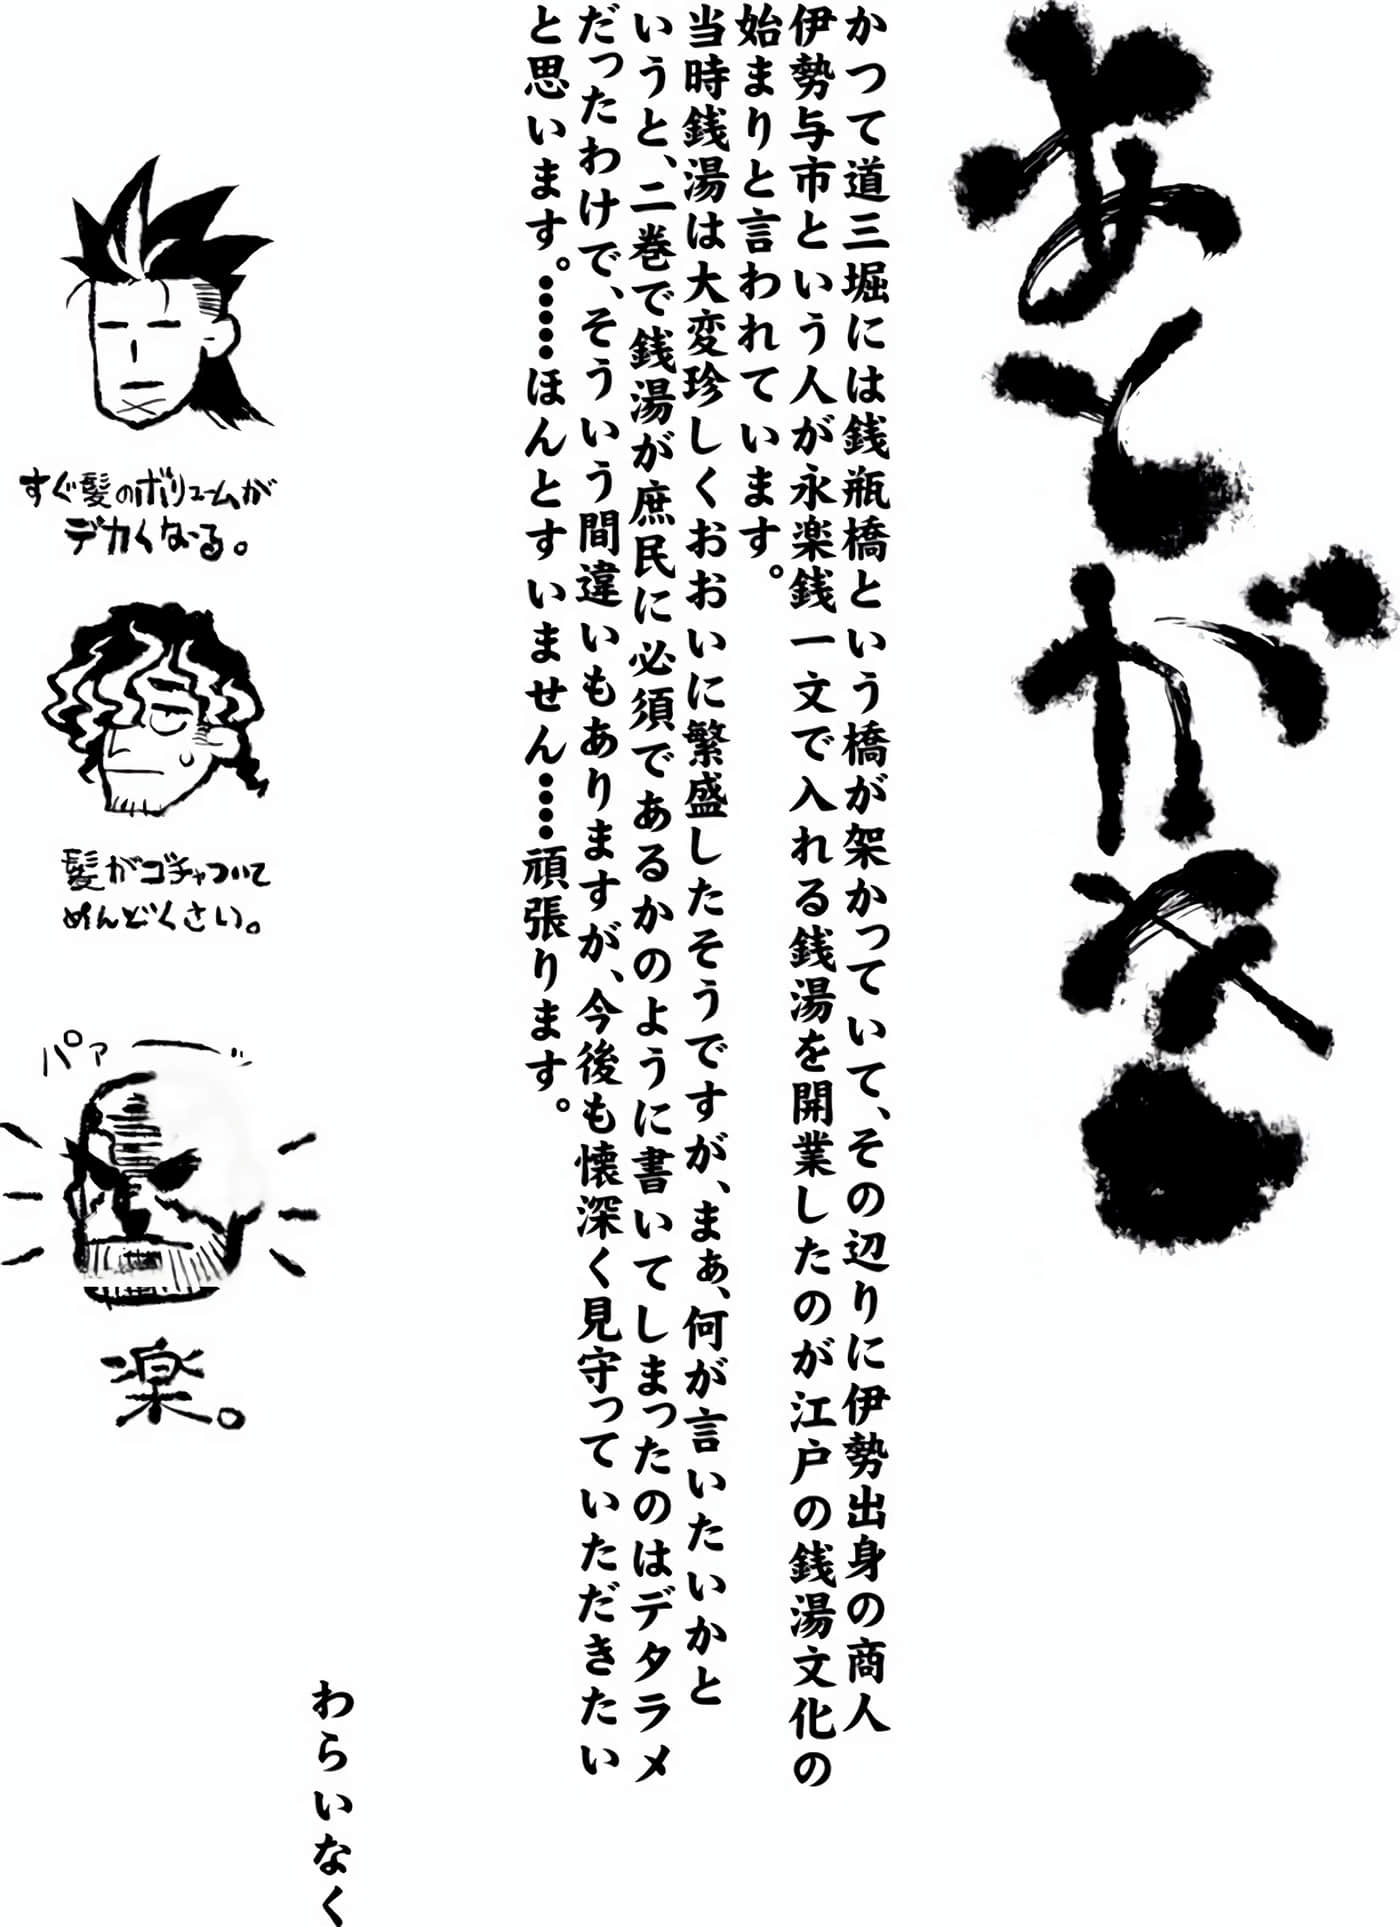 あとがき
かつて道三堀には銭瓶橋という橋が架かっていて、その辺りに伊勢出身の商人
伊勢与市という人が永楽銭一文で入れる銭湯を開業したのが江戸の銭湯文化の
始まりと言われています。
当時銭湯は大変珍しくおおいに繁盛したそうですが、まぁ、何が言いたいかと
いうと、二巻で銭湯が庶民に必須であるかのように書いてしまったのはデタラメ
だったわけで、そういう間違いもありますが、今後も懐深く見守っていただきたい
と思います。……ほんとすいません……頑張ります。
すぐ髪のボリュームが
デカくなる。
髪がゴチャついて
めんどくさい。
パァーッ
楽。
わらいなく